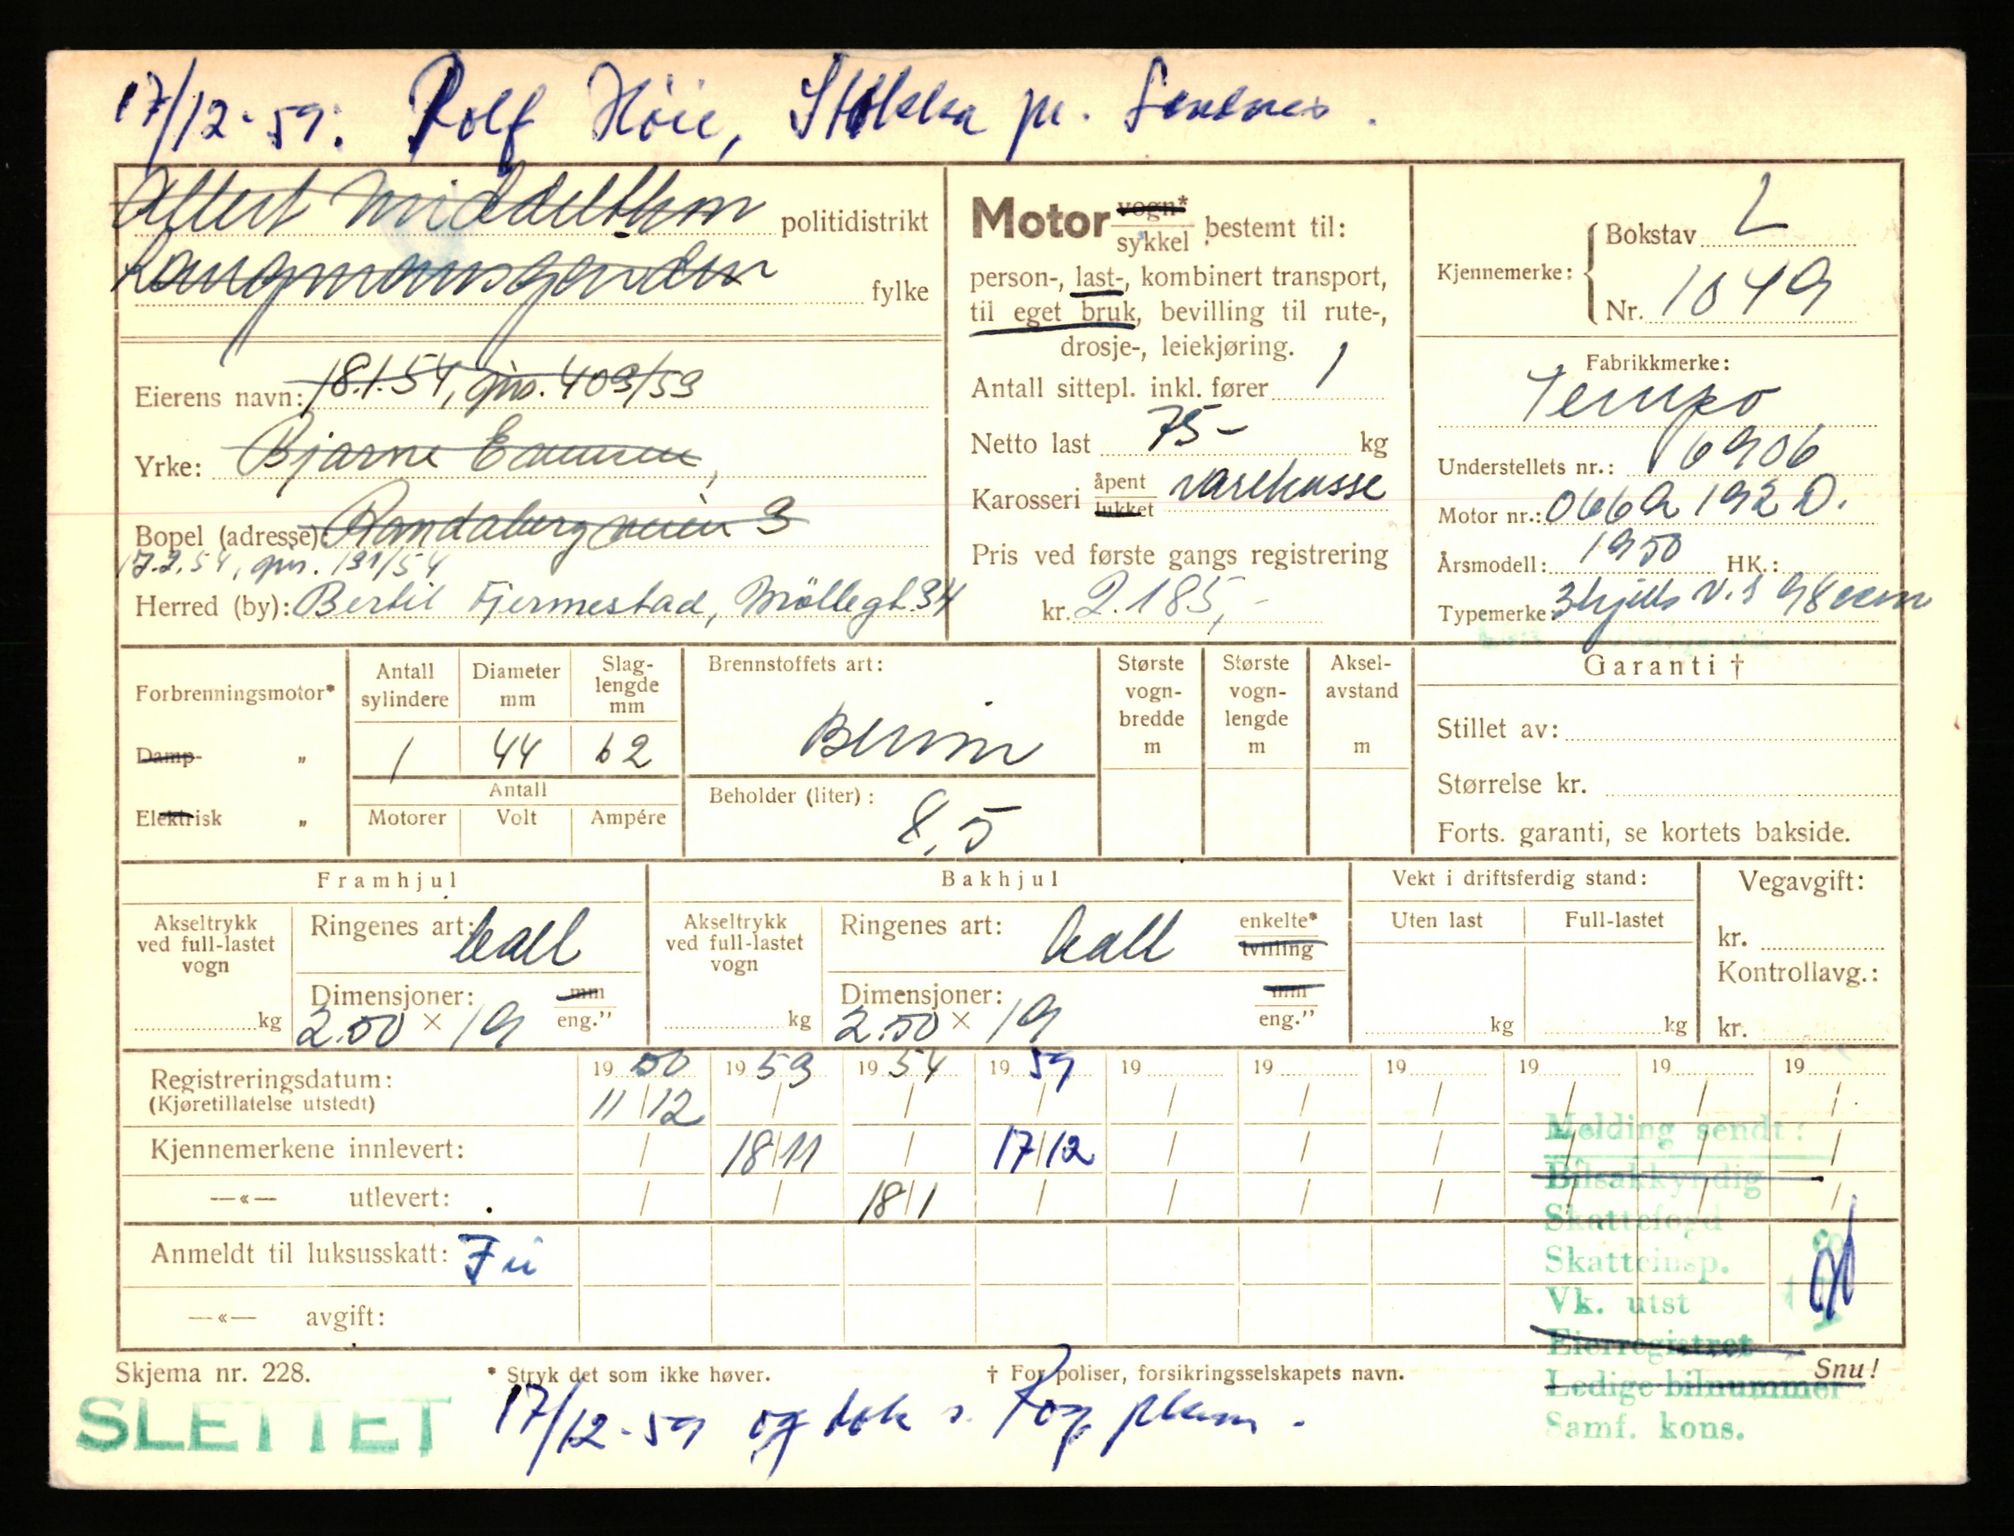 17/12-59. Rolf Höie, Stokka pr. Sandnes.
Middelthon politidistrikt
fylke
Eierens navn: 18.1.54, gjns. 403/53
Yrke: Bjarne
Bopel (adresse): Randabergveien 3
17.2.54, gjns. 191/54
Herred (by): Bertil Fjermestad, Möllegt. 34
Motor vogn* / sykkel bestemt til:
person-, last-, kombinert transport,
til eget bruk, bevilling til rute-,
drosje-, leiekjøring.
Antall sittepl. inkl. fører 1
Netto last 75- kg
Karosseri åpent / lukket varekasse
Pris ved første gangs registrering
kr. 2.185,-
Kjennemerke: Bokstav L
Nr. 1049
Fabrikkmerke:
Tempo
Understellets nr.: 16906
Motor nr.: 0662192 D.
Årsmodell: 1950 HK.:
Typemerke: 3hjuls v.s 98 ccm
Forbrenningsmotor*
Damp- "
Elektrisk "
Antall sylindere Diameter mm Slag-lengde mm
1 44 62
Antall
Motorer Volt Ampére
Brennstoffets art:
Bensin
Beholder (liter): 8,5
Største vogn-bredde m
Største vogn-lengde m
Aksel-avstand m
Garanti †
Stillet av:
Størrelse kr.
Forts. garanti, se kortets bakside.
Framhjul
Akseltrykk ved full-lastet vogn
kg
Ringenes art: ball
Dimensjoner: mm
2.50 × 19 eng."
Bakhjul
Akseltrykk ved full-lastet vogn
kg
Ringenes art: ball enkelte* / tvilling
Dimensjoner: mm
2.50 × 19 eng."
Vekt i driftsferdig stand:
Uten last Full-lastet
kg kg
Vegavgift:
kr.
Kontrollavg.:
kr.
Registreringsdatum: 1950 1953 1954 1959 19 19 19 19 19 19
(Kjøretillatelse utstedt) 11/12 / / / / / / / / /
Kjennemerkene innlevert: / 18/11 / 17/12 / / / / / /
—«— utlevert: / / 18/1 / / / / / / /
Anmeldt til luksusskatt: Fri
—«— avgift:
Melding sendt:
Bilsakkyndig
Skattefogd
Skatteinsp.
Vk. utst
Eierregistret
Ledige bilnummer
Samf. kons.
Skjema nr. 228.
* Stryk det som ikke høver.
† For poliser, forsikringsselskapets navn.
Snu!
SLETTET
17/12-59 og